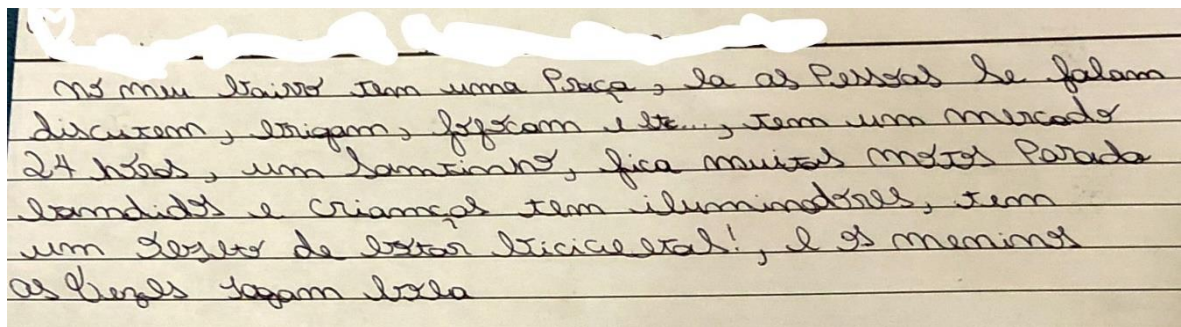 no meu bairro tem uma Praça, la as Pessoas se falam
discutem, brigam, fofocam e etc..., tem um mercado
24 horas, um Santinho, fica muitas motos Parada
bandidos e crianças tem iluminadores, tem
um de botar bicicletas!, e os meninos
as vezes jogam bola